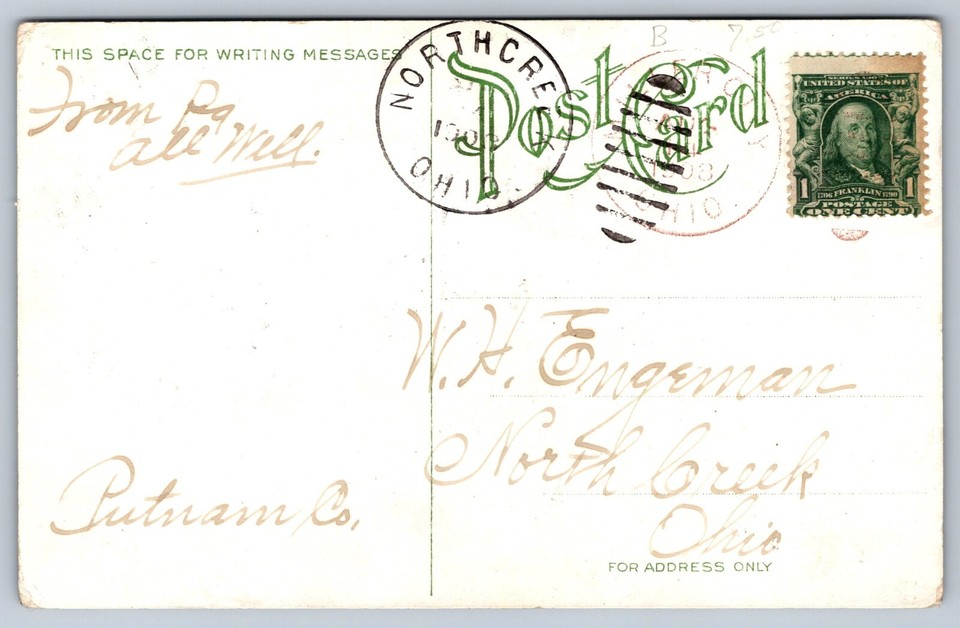 THIS SPACE FOR WRITING MESSAGES
From Pa
all Well.
Putnam Co.
NORTHCREEK
1908
OHIO.
Post Card
B 7.50
1908
OHIO
SERIES 1902
UNITED STATES OF
AMERICA
1 1706 FRANKLIN 1790 1
POSTAGE
ONE CENT
W. H. Engeman
North Creek
Ohio
FOR ADDRESS ONLY